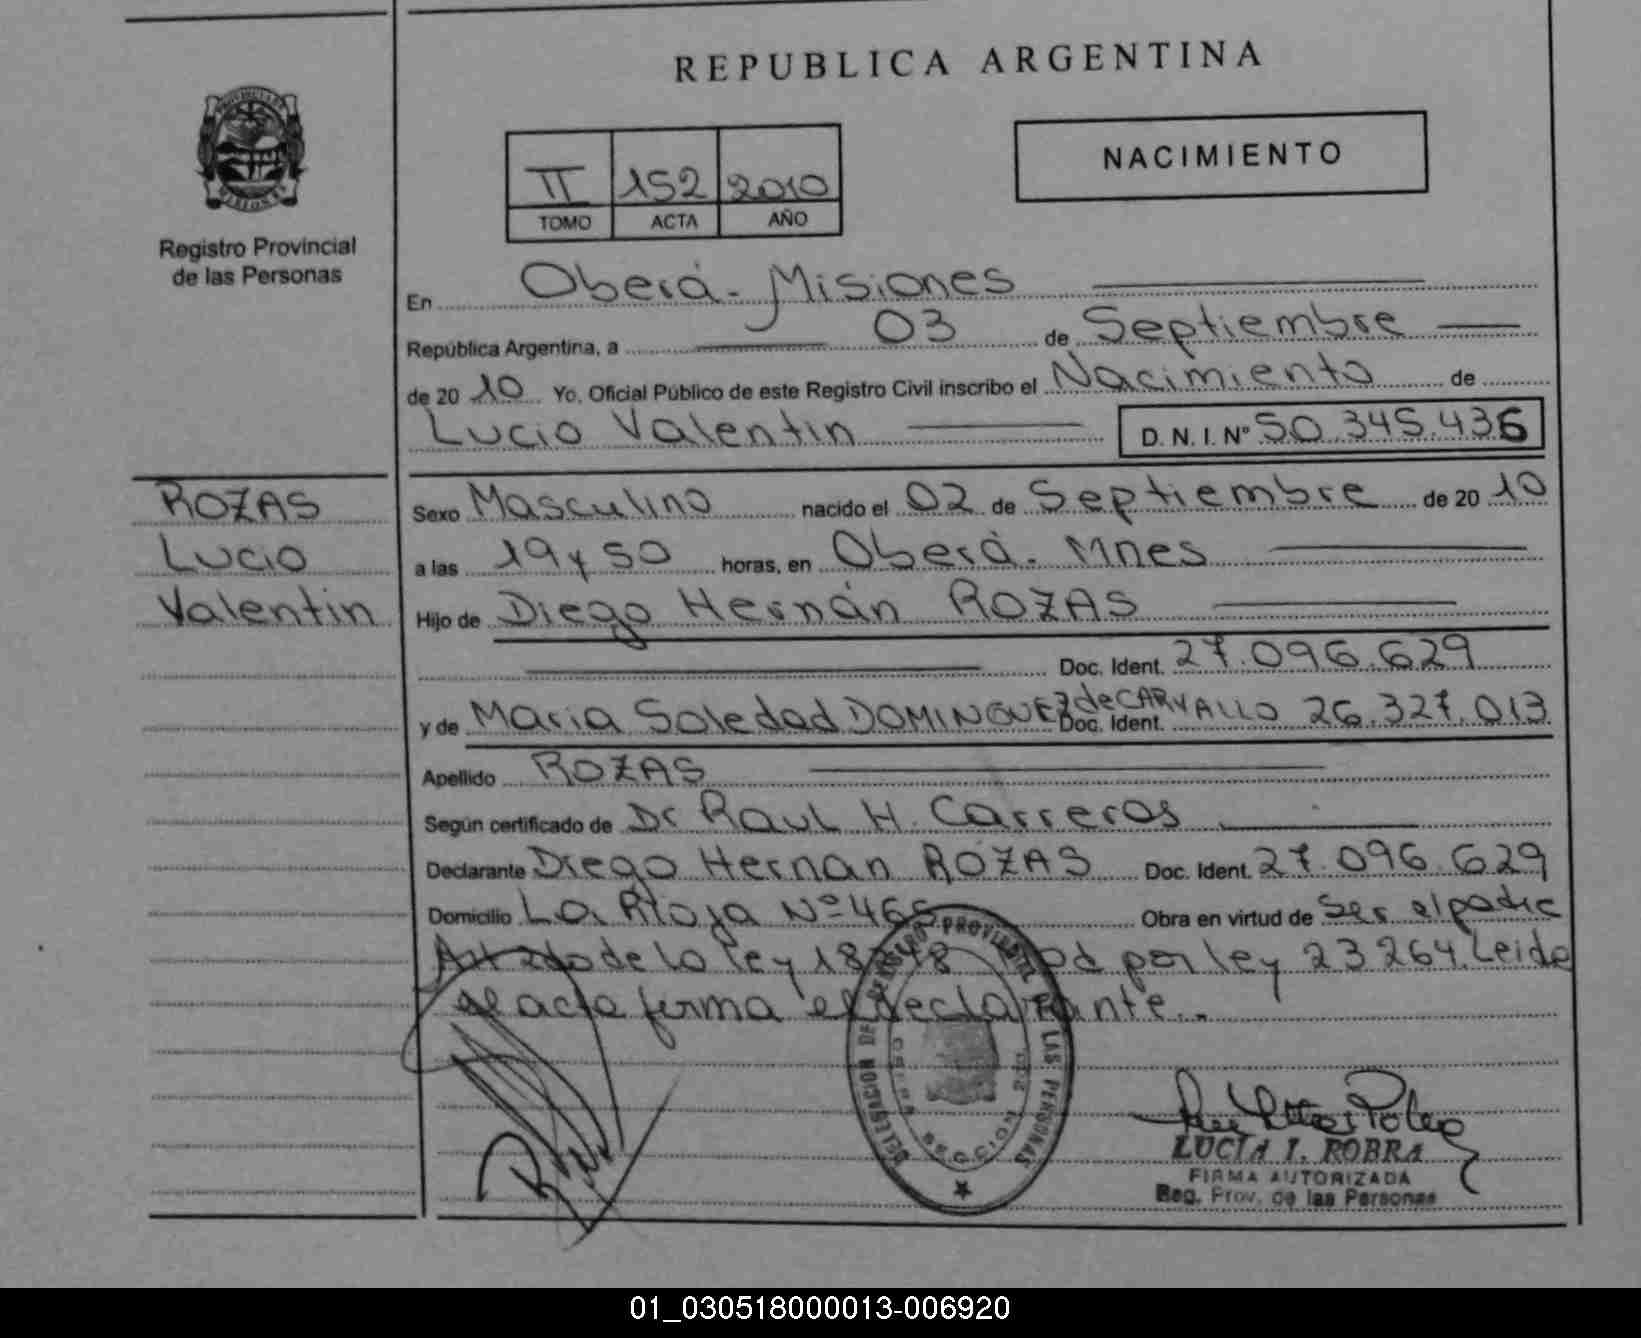 REPUBLICA ARGENTINA
NACIMIENTO
II 152 2010
TOMO ACTA AÑO
Registro Provincial
de las Personas
En Oberá - Misiones
República Argentina, a 03 de Septiembre
de 20 10 Yo, Oficial Público de este Registro Civil inscribo el Nacimiento de
Lucio Valentin D. N. I. Nº 50.345.436
ROZAS
Lucio
Valentin
Sexo Masculino nacido el 02 de Septiembre de 20 10
a las 19 y 50 horas, en Oberá. Mnes
Hijo de Diego Hernán ROZAS
Doc. Ident. 27.096.629
y de Maria Soledad DOMINGUEZ de CARVALLO Doc. Ident. 26.327.013
Apellido ROZAS
Según certificado de Dr Raul H. Carreros
Declarante Diego Hernan ROZAS Doc. Ident. 27.096.629
Domicilio La Rioja Nº 466 Obra en virtud de Ser el padre
de la ley por ley 23264. Leida
el acta firma el declarante.
DELEGACION DEL REGISTRO PROVINCIAL DE LAS PERSONAS
LUCIA I. ROBRA
FIRMA AUTORIZADA
Reg. Prov. de las Personas
01_030518000013-006920